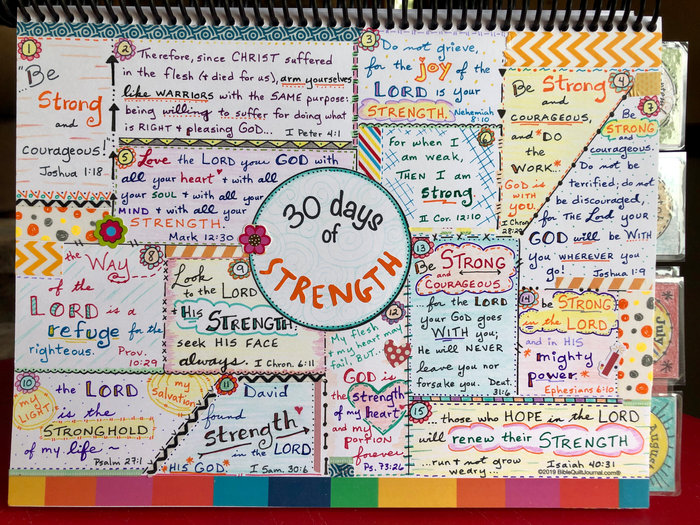 1
"Be
Strong
and
courageous!"
Joshua 1:18
2
Therefore, since CHRIST suffered
in the flesh (& died for us), arm yourselves
like WARRIORS with the SAME purpose:
being willing to suffer for doing what
is RIGHT & pleasing GOD... I Peter 4:1
3
Do not grieve,
for the joy of the
LORD is your
STRENGTH.
Nehemiah
8:10
4
Be Strong
and
COURAGEOUS,
and DO
the
WORK...
GOD is
WITH
you
I Chron.
28:20
5
Love the LORD your GOD with
all your heart & with all
your SOUL & with all your
MIND & with all your
STRENGTH.
Mark 12:30
6
For when I
am weak,
THEN I am
strong.
II Cor. 12:10
7
Be
STRONG
and
courageous.
Do not be
terrified; do not
be discouraged,
for THE Lord your
GOD will be WITH
you WHEREVER you
go! Joshua 1:9
30 days
of
STRENGTH
8
the WAY
of the
LORD is a
refuge for the
righteous. Prov.
10:29
9
Look
to the LORD
& HIS STRENGTH;
seek HIS FACE
always. I Chron. 16:11
10
the LORD
my
LIGHT
is the
my
Salvation
STRONGHOLD
of my life ~
Psalm 27:1
11
David
found
strength
in the LORD
HIS GOD.
I Sam. 30:6
12
My flesh
& my heart may
fail, BUT...
GOD is
the strength
of my heart
and my
PORTION
forever.
Ps. 73:26
13
Be STRONG
and
COURAGEOUS
for the LORD
your GOD goes
WITH you;
He will NEVER
leave you nor
forsake you. Deut.
31:6
14
be STRONG
in the LORD
and in HIS
mighty
power
Ephesians 6:10
15
... those who HOPE in the LORD
will renew their STRENGTH
...run & not grow
weary...
Isaiah 40:31
©2019 BibleQuiltJournal.com®
July
august